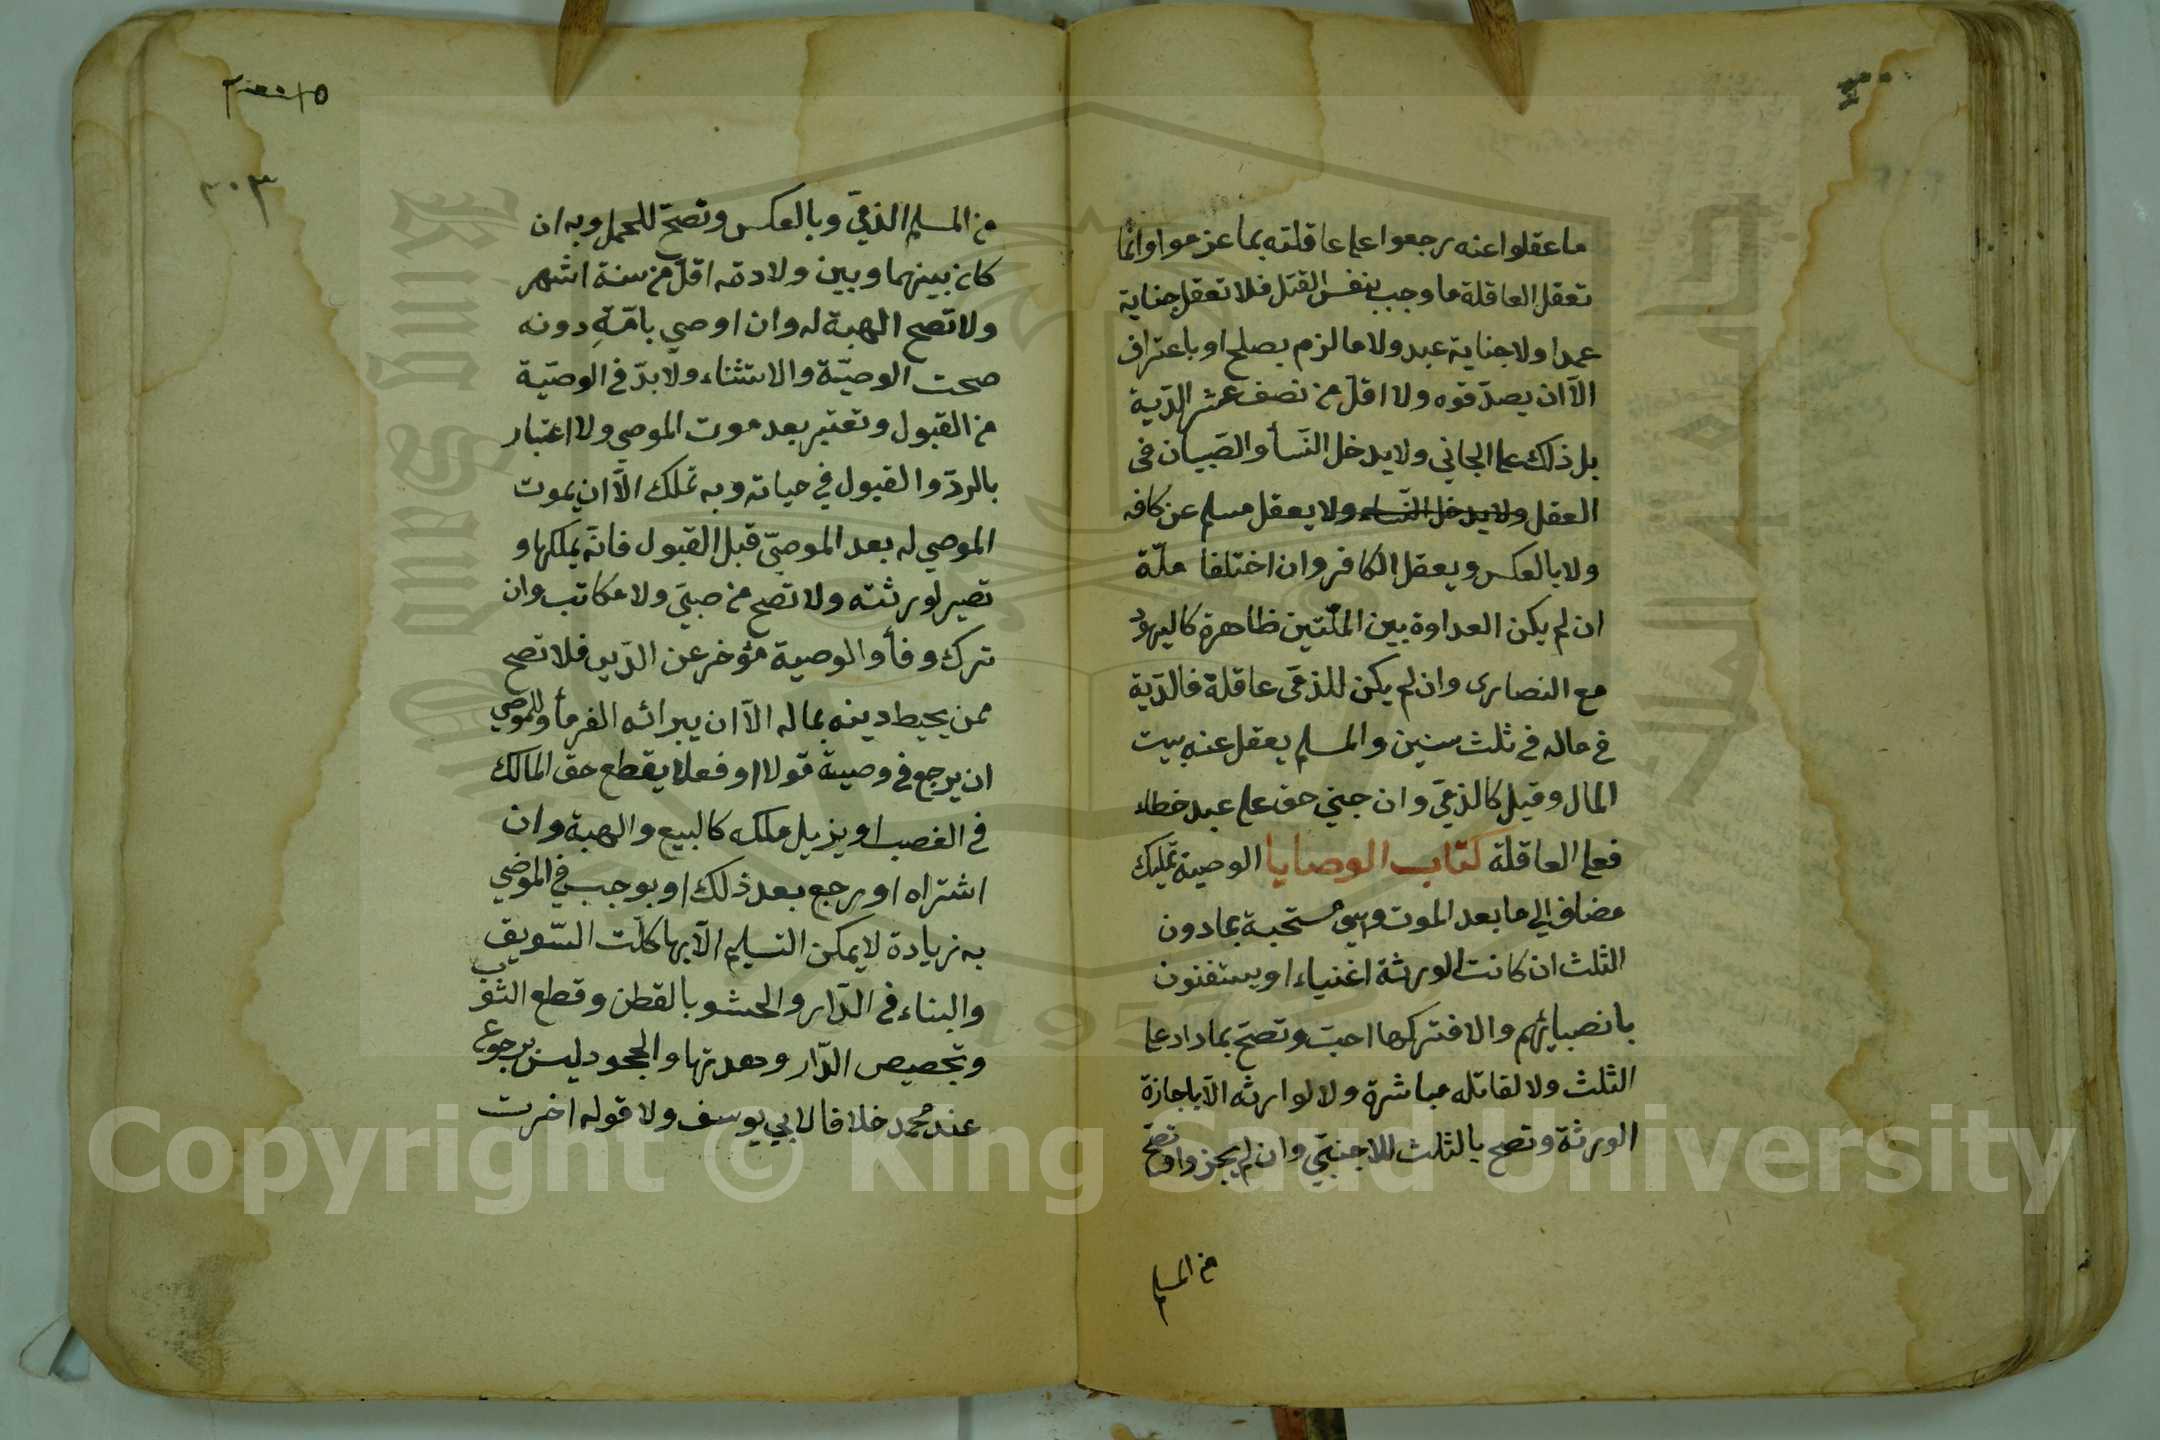 ما عقلوا عنه رجعوا على عاقلته بما عزموا وانّما
تعقل العاقلة ما وجب بنفس القتل فلا تعقل جناية
عمدا ولا جناية عبد ولا ما لزم بصلح او باعتراف
الّا ان يصدّقوه ولا اقلّ من نصف عشر الدّية
بل ذلك على الجاني ولا يدخل النّسأ والصّبيان في
العقل ولا يدخل النّساء ولا يعقل مسلم عن كافر
ولا بالعكس ويعقل الكافر وان اختلفا ملّة
ان لم يكن العداوة بين الملّتين ظاهرة كاليهود
مع النصارى وان لم يكن للذمّى عاقلة فالدّية
في ماله في ثلث سنين والمسلم يعقل عنه بيت
المال وقيل كالذمّي وان جني حق على عبد خطاء
فعلى العاقلة كتاب الوصايا الوصية تمليك
مضاف الي ما بعد الموت وهي مستحبة بما دون
الثلث ان كانت الورثة اغنياء او يستغنون
بانصبائهم والا فتركها احبّ وتصحّ بما زاد على
الثلث ولا لقاتله مباشرة ولا لوارثه الّا باجازة
الورثة وتصح بالثلث للاجنبّي وان لم يجزوا وتصحّ
من المسلم
٣٠٣
من المسلم الذمّيّ وبالعكس وتصحّ للحمل وبه ان
كان بينهما وبين ولادته اقلّ من ستة اشهر
ولا تصح الهبة له وان اوصي بامّةٍ دونه
صحت الوصيّة والاستثناء ولا بدّ في الوصيّة
من القبول وتعتبر بعد موت الموصي ولا اعتبار
بالردّ والقبول في حياته وبه تملك الّا ان يموت
الموصي له بعد الموصيّ قبل القبول فانّه يملكها و
تصير لورثته ولا تصح من صبيّ ولا مكاتب وان
ترك وفأ والوصية مؤخر عن الدّين فلا تصح
ممن يحيط دينه بماله الّا ان يبرائه الغرمأ وللموصي
ان يرجع في وصية قولا او فعلا يقطع حق المالك
في الغصب او يزيل ملكه كالبيع والهبة وان
اشتراه او رجع بعد ذلك او يوجب في الموصي
به زيادة لا يمكن التسليم الّا بها كلتّ السّويق
والبناء في الدّار والحشو بالقطن وقطع الثوب
وتجصيص الدّار وهدمها والجحود ليس برجوع
عند محمد خلافا لابي يوسف ولا قوله اخرت
Copyright © King Saud University